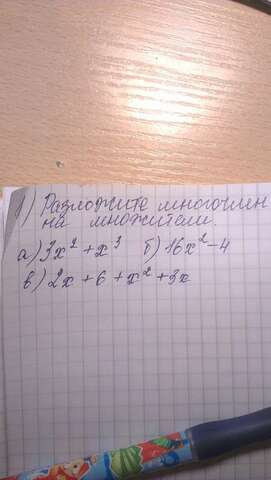 1) Разложите многочлен
на множители.
а) 3x² + x³ б) 16x² - 4
в) 2x + 6 + x² + 3x